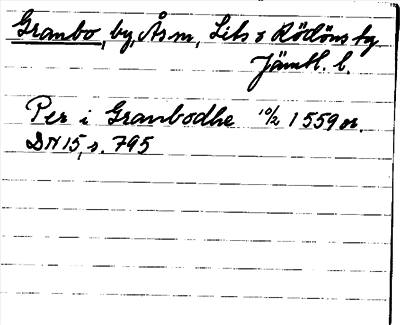 Granbo, by, Ås sn, Lits o Rödöns tg
Jämtl. l.
Per i Granbodhe 10/2 1559 or.
DN 15, s. 795